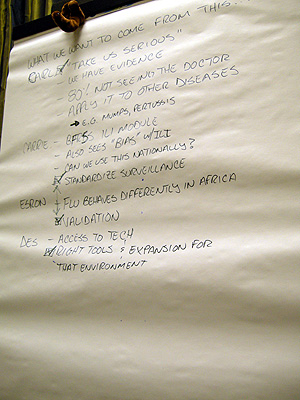 WHAT WE WANT TO COME FROM THIS...
CARL "TAKE US SERIOUS"
- WE HAVE EVIDENCE
- 80% NOT SEEING THE DOCTOR
- APPLY IT TO OTHER DISEASES
→ E.G. MUMPS, PERTUSSIS
- ILI MODULE
- ALSO SEES "BIAS" W/ILI
- CAN WE USE THIS NATIONALLY?
STANDARDIZE SURVEILLANCE
FLU BEHAVES DIFFERENTLY IN AFRICA
VALIDATION
DES - ACCESS TO TECH
RIGHT TOOLS & EXPANSION FOR
THAT ENVIRONMENT